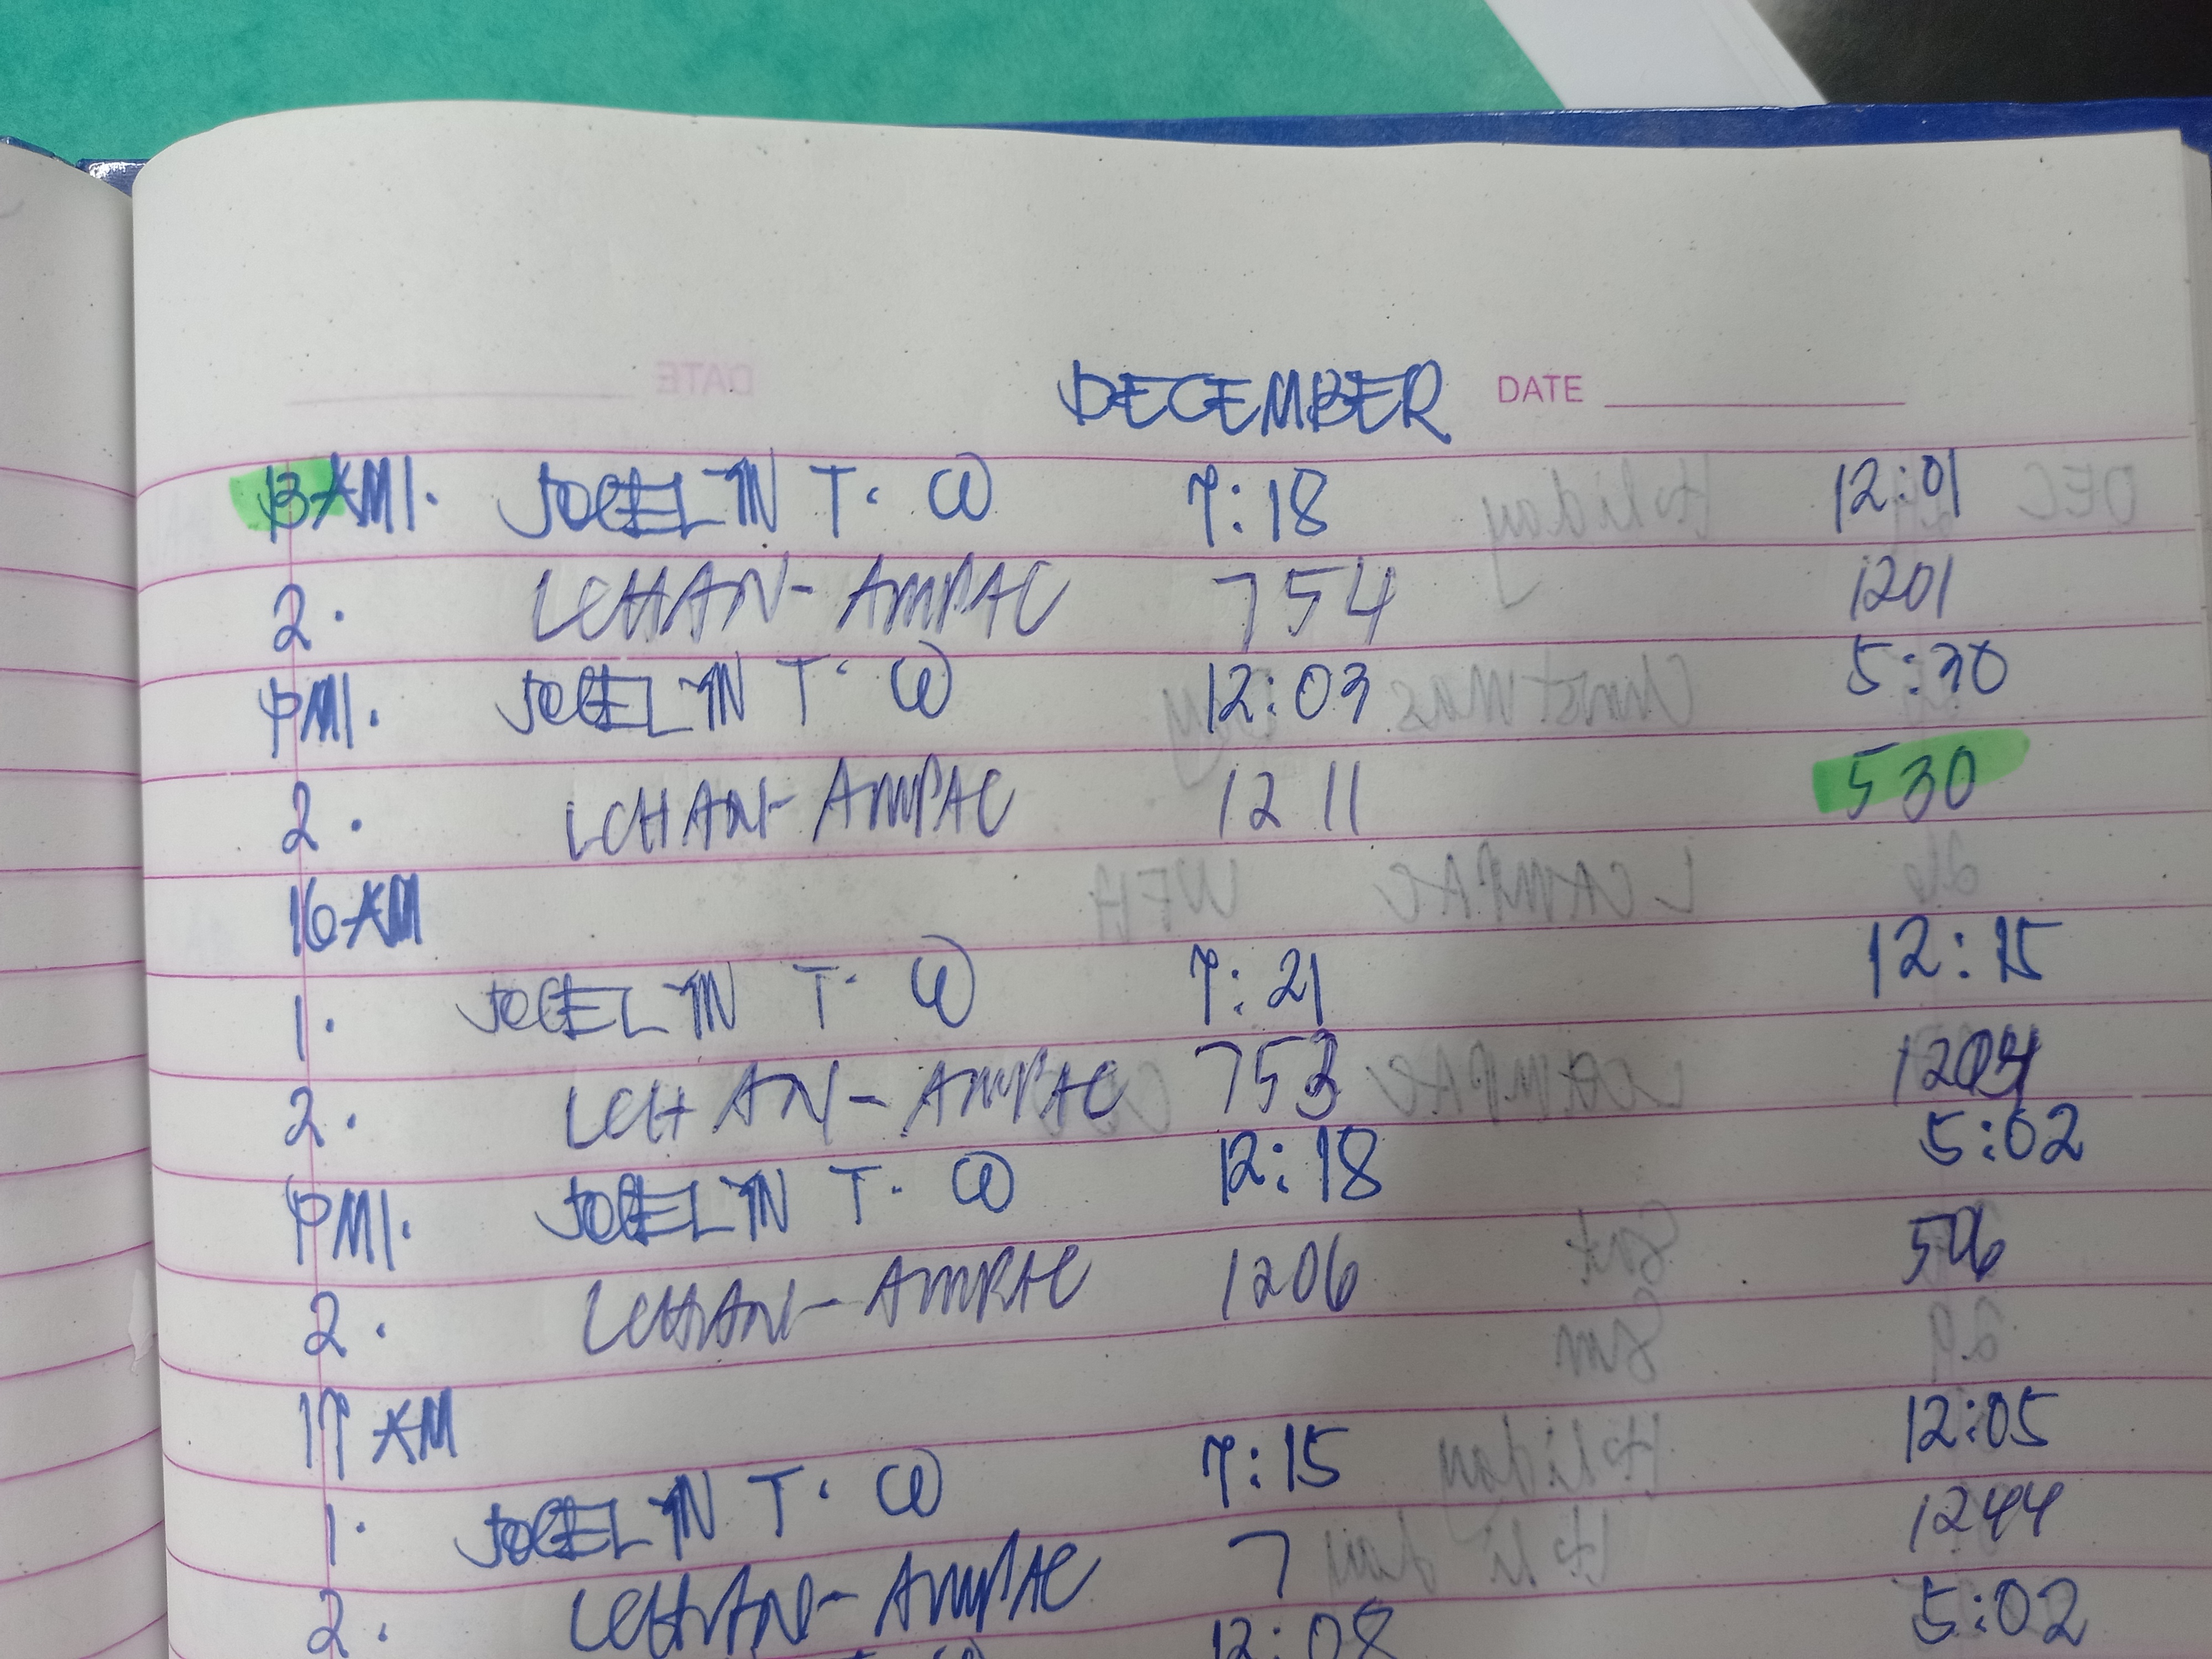 DECEMBER DATE
13 AM 1. JOCELYN T. W 7:18 12:01
2. LCHAN-AMPAC 754 1201
PM 1. JOCELYN T. W 12:03 5:30
2. LCHAN-AMPAC 12 11 530
16 AM
1. JOCELYN T. W 7:21 12:15
2. LCHAN-AMPAC 753 1204
PM 1. JOCELYN T. W 12:18 5:02
2. LCHAN-AMPAC 1206 506
17 AM
1. JOCELYN T. W 7:15 12:05
2. LCHAN-AMPAC 7 1244
12:08 5:02